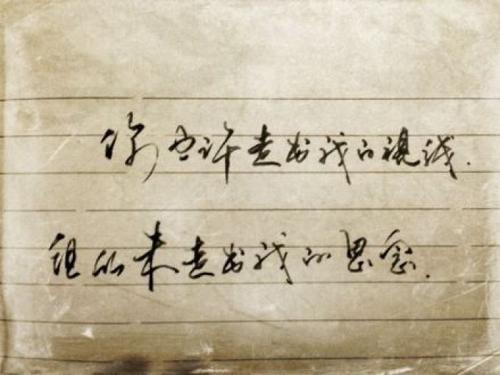 你也许走出我的视线.
但从未走出我的思念.